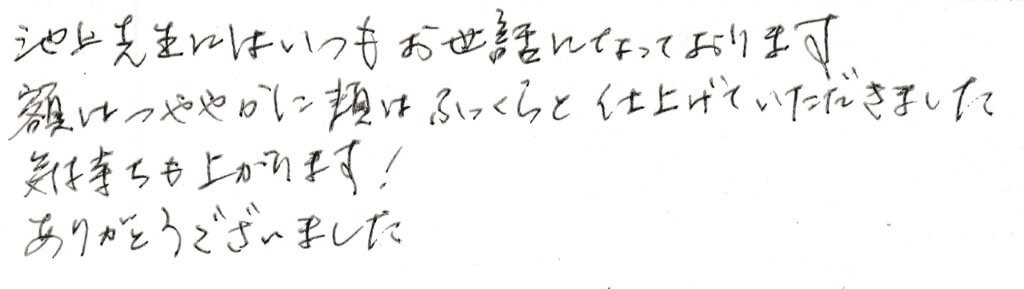 池上先生にはいつもお世話になっております
額はつややかに頬はふっくらと仕上げていただきました
気持ちも上がります！
ありがとうございました